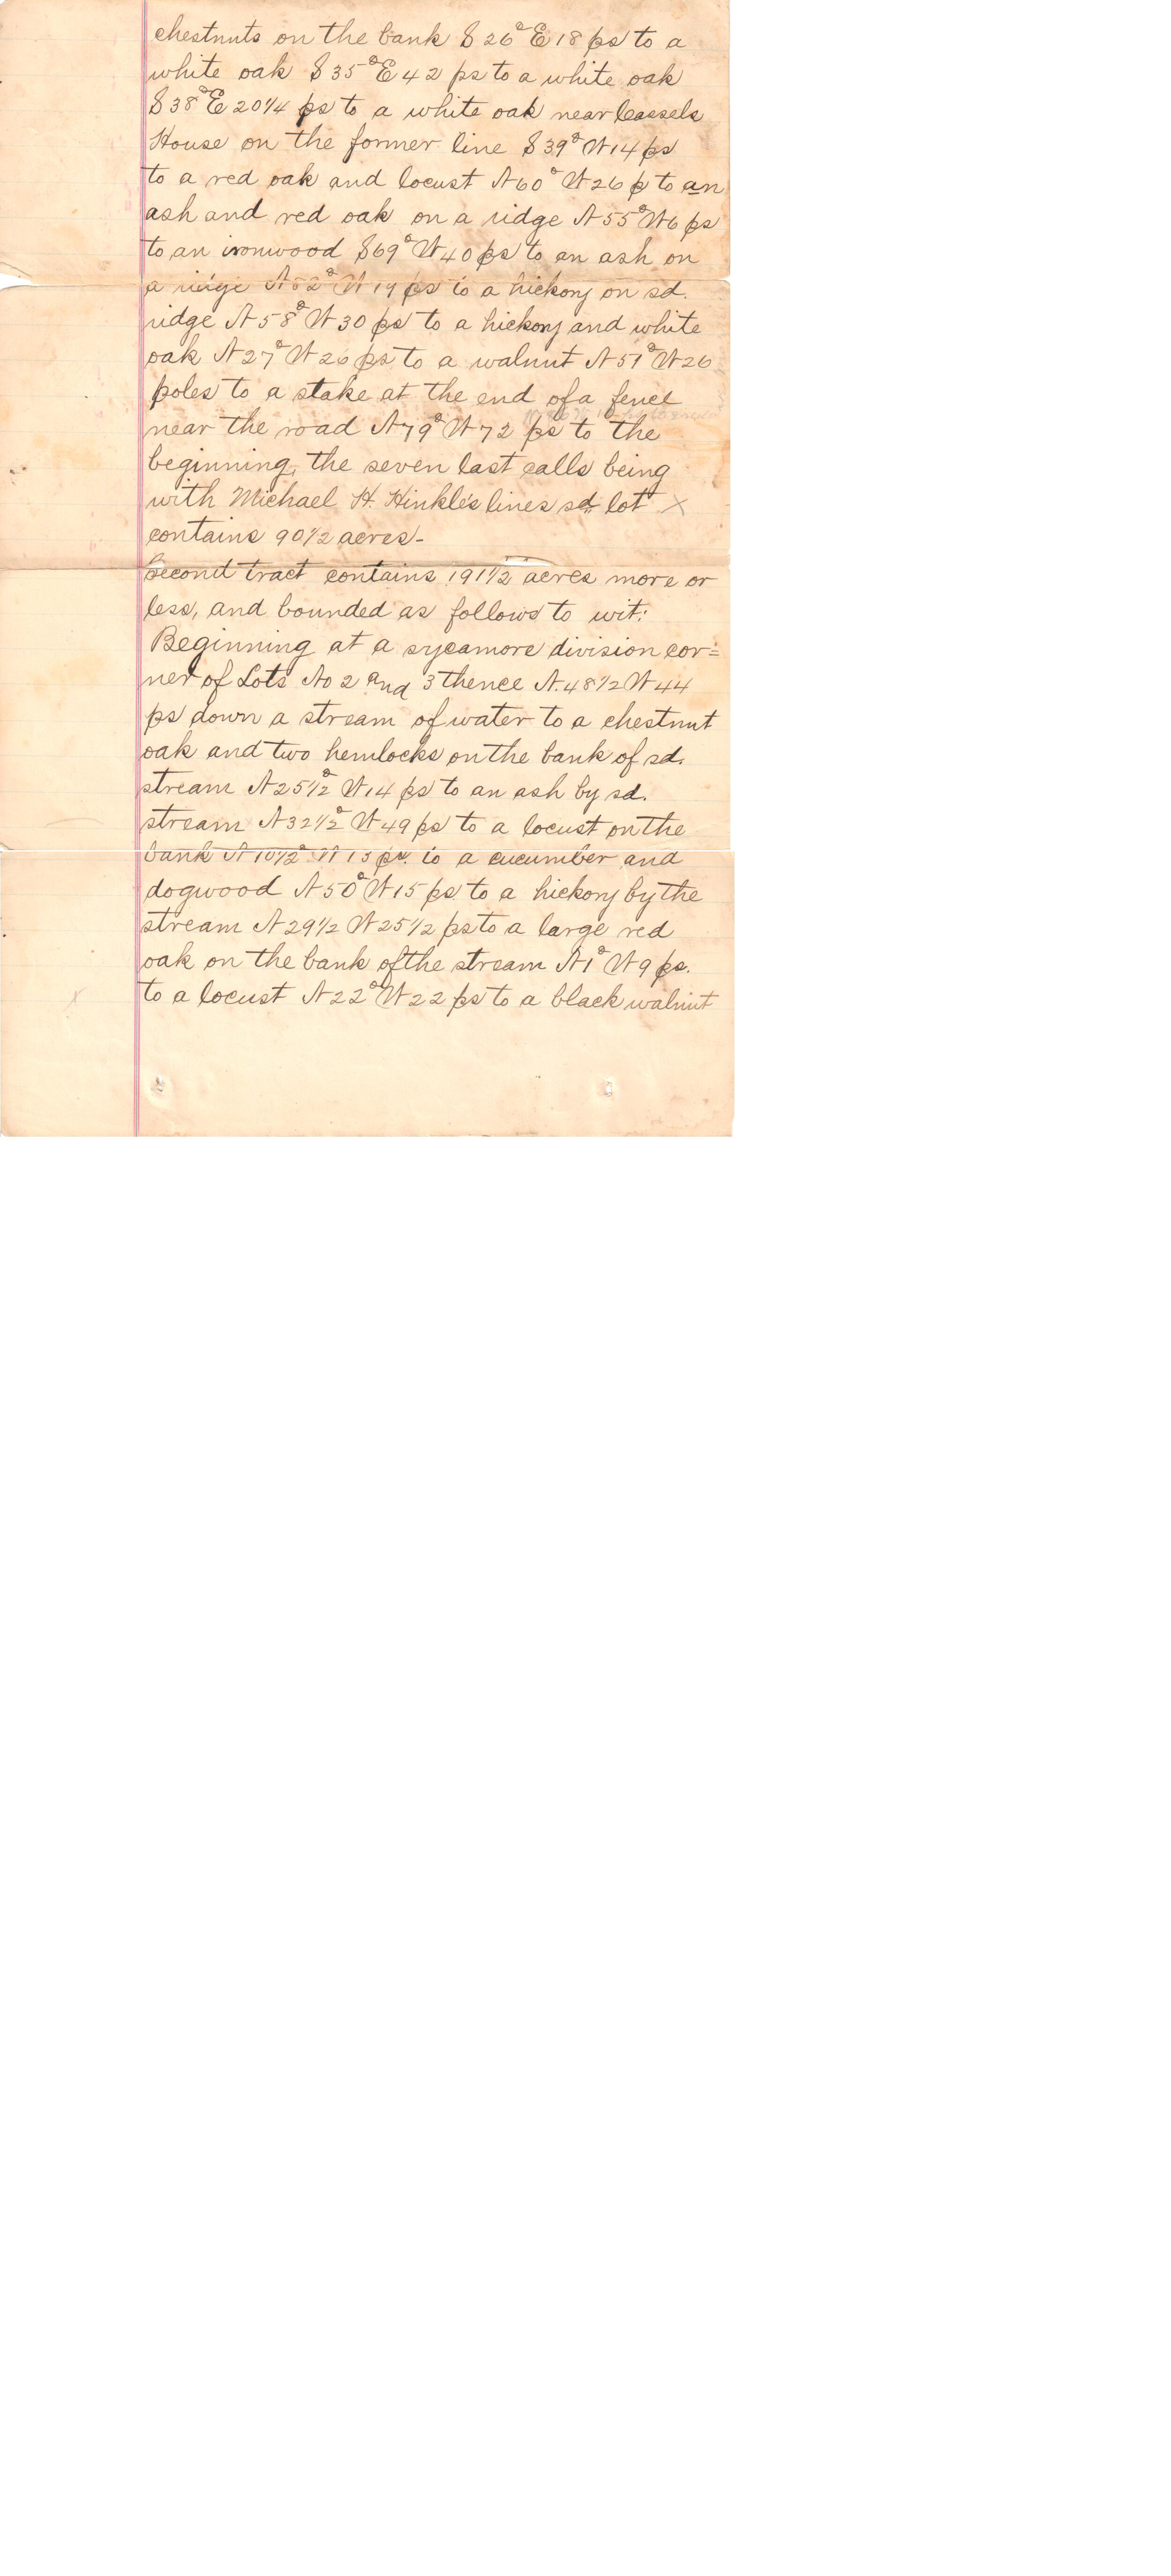 chestnuts on the bank S 26° E 18 ps to a
white oak S 35° E 42 ps to a white oak
S 38° E 20 1/4 ps to a white oak near Cassels
House on the former line S 39° W 14 ps
to a red oak and locust N 60° W 26 p to an
ash and red oak on a ridge N 55° W 6 ps
to an ironwood S 69° W 40 ps to an ash on
a ridge W ps to a hickory on sd.
ridge N 58° W 30 ps to a hickory and white
oak N 27° W 26 ps to a walnut N 51° W 26
poles to a stake at the end of a fence
near the road N 79° W 72 ps to the
beginning, the seven last calls being
with Michael H. Hinkle's lines sd lot X
contains 90 1/2 acres-
Second tract contains 191 1/2 acres more or
less, and bounded as follows to wit:
Beginning at a sycamore division cor=
ner of Lots No 2 and 3 thence N. 48 1/2 W 44
ps down a stream of water to a chestnut
oak and two hemlocks on the bank of sd.
stream N 25 1/2° W 14 ps to an ash by sd.
stream N 32 1/2° W 49 ps to a locust on the
bank N 10 1/2° W 13 ps. to a cucumber and
dogwood N 50° W 15 ps to a hickory by the
stream N 29 1/2 W 25 1/2 ps to a large red
oak on the bank of the stream N 1° W 9 ps.
to a locust N 22° W 22 ps to a black walnut